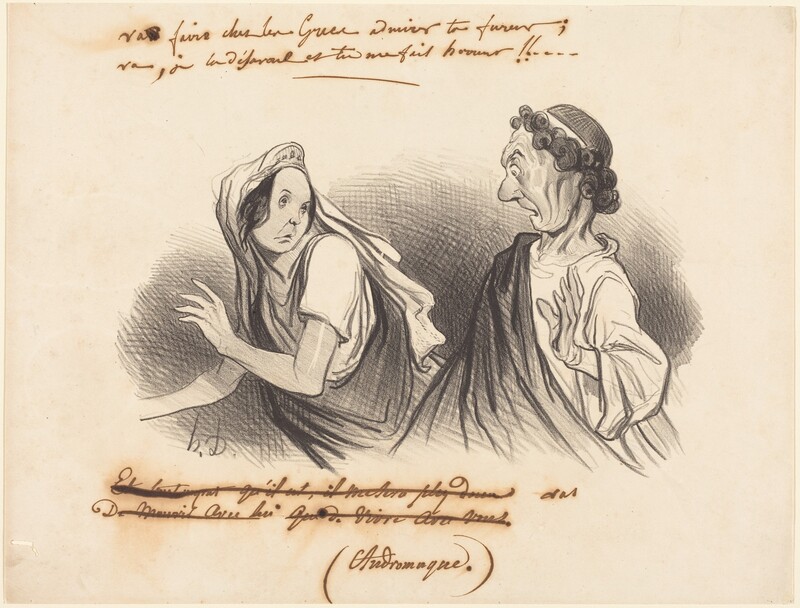 va faire chez les Grecs admirer ta fureur ;
va, je la désavoue et tu me fais horreur !!----
h.D.
Et tout ingrat qu'il est, il me sera plus doux
De Mourir avec lui que de Vivre avec vous.
(Andromaque.)